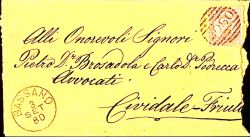 Alli Onorevoli Signori
Pietro Dr. Brosadola e Carlo Dr. Podrecca
Avvocati
Cividale-Friuli
BASSANO
3
80